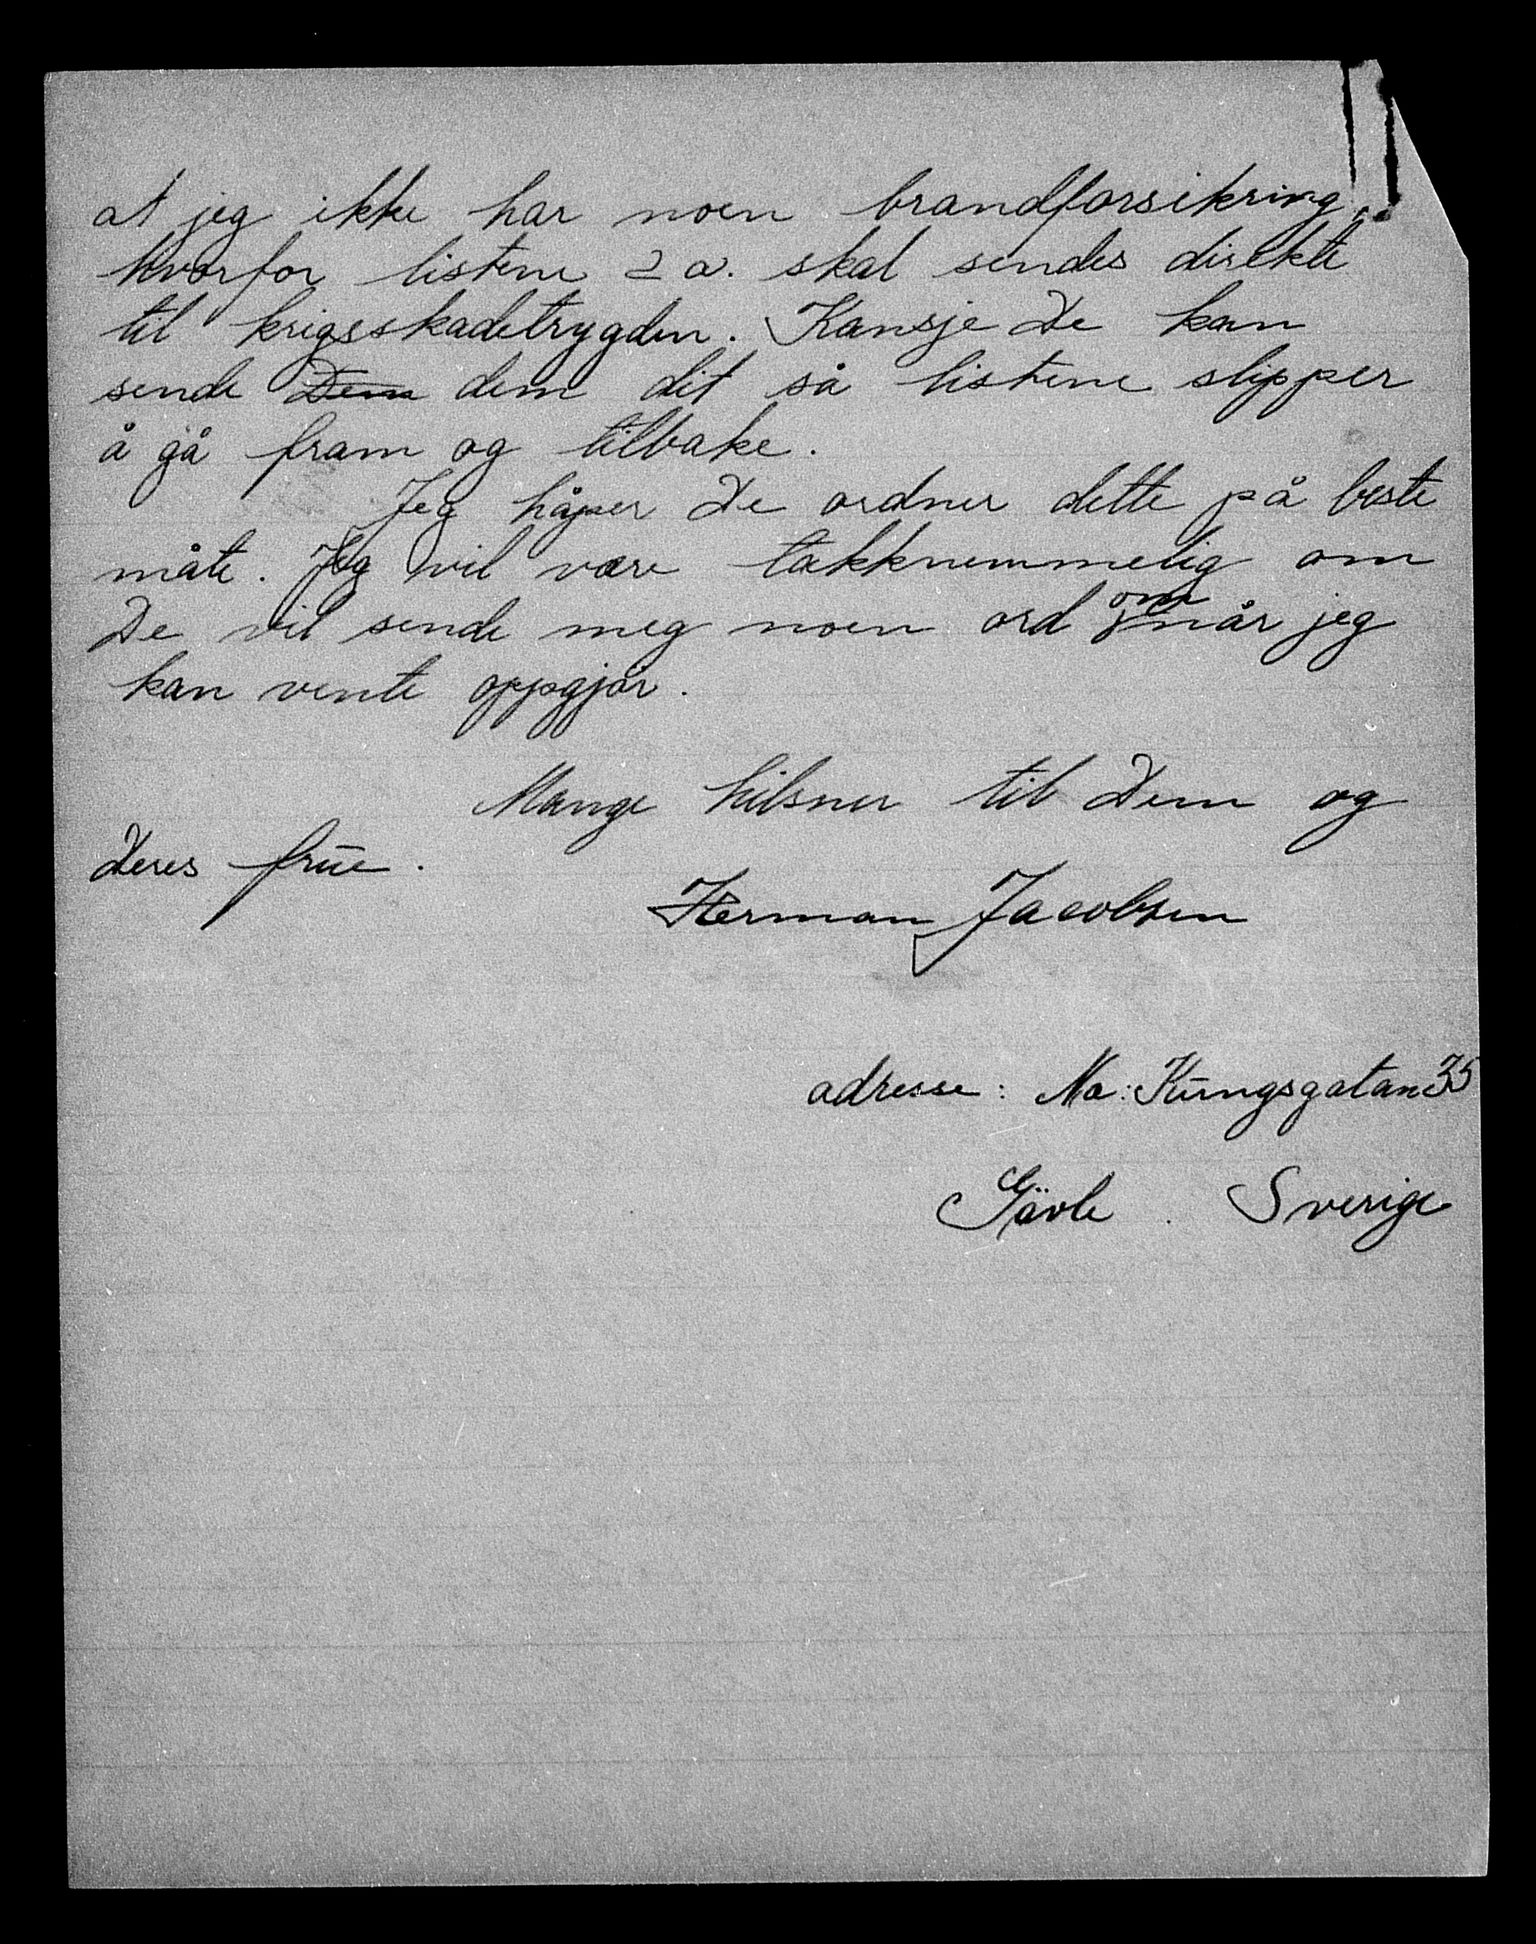 at jeg ikke har noen brandforsikring,
hvorfor listene 2 a. skal sendes direkte
til krigsskadetrygden. Kansje De kan
sende Dem dem dit så listene slipper
å gå fram og tilbake.
Jeg håper De ordner dette på beste
måte. Jeg vil være takknemmelig om
De vil sende meg noen ord om når jeg
kan vente oppgjør.
Mange hilsner til Dem og
Deres frue.
Herman Jacobsen
adresse: No: Kungsgatan 35
Gävle. Sverige